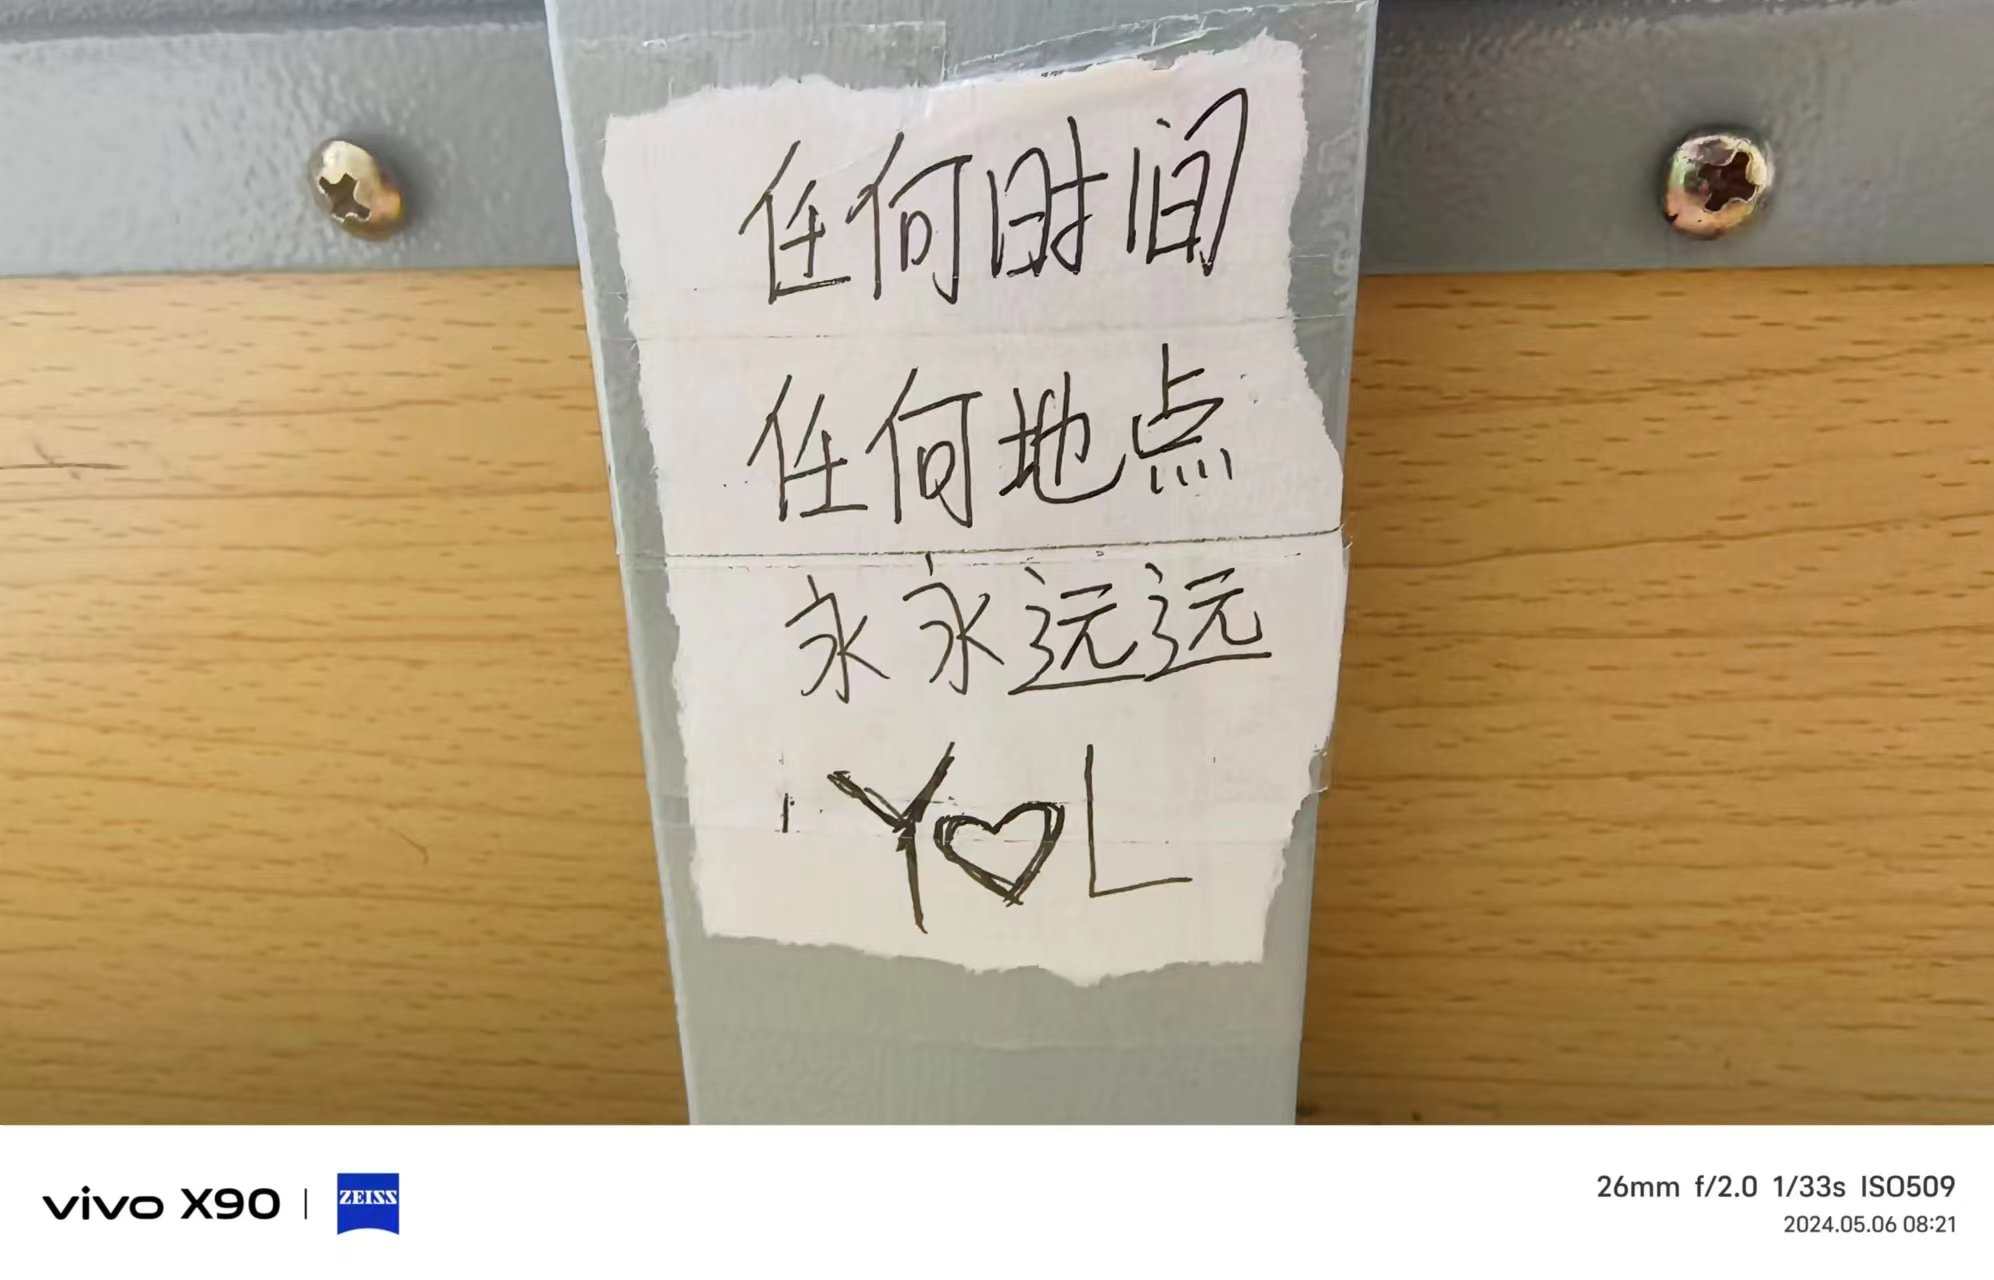 任何时间
任何地点
永永远远
Y♡L
vivo X90 | ZEISS
26mm f/2.0 1/33s ISO509
2024.05.06 08:21